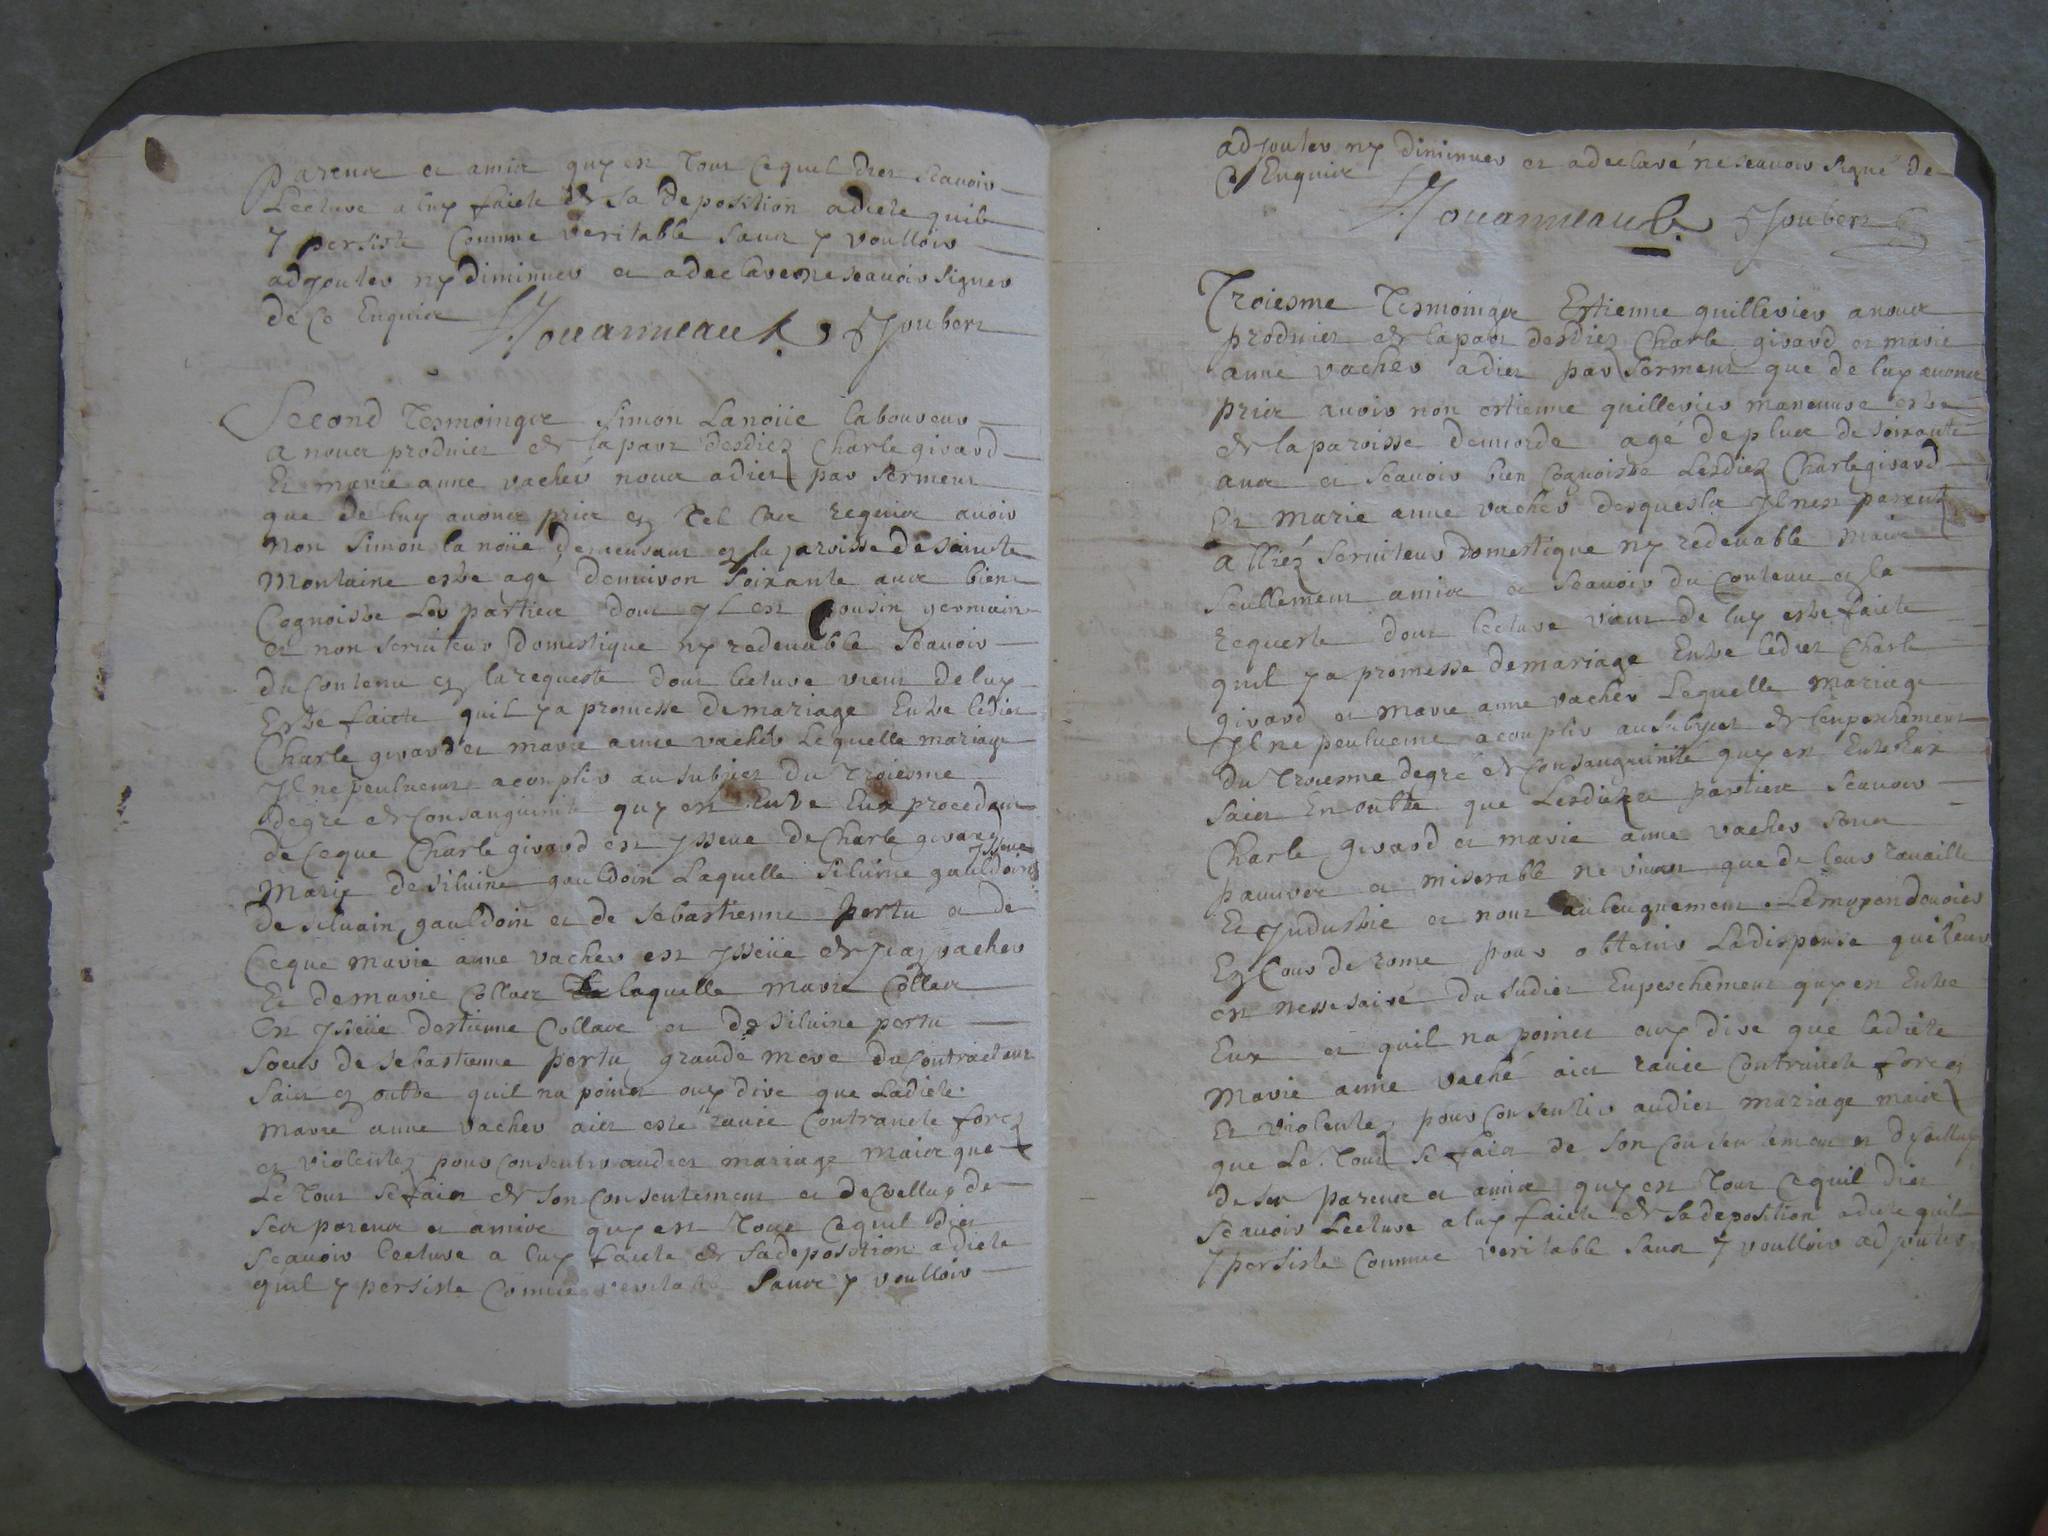 Parens et amis quy est tout cequil dict scavoir
Lecture a luy faicte de sa deposition adicte quil
y persiste comme veritable sans y voulloir
adjouter ny diminuer et adeclare ne scavoir signer
de ce Enquis
Houanneault Joubert
Second Tesmoing est Simon Lanoüe laboureur
a nous produict de la part desdictz Charle girard
Et marie anne vacher nous adict par serment
que de luy avons pris en tel cas requis avoir
non Simon la noüe demeurant en la paroisse de sainte
Montaine estre agé denviron soixante ans bien
Cognoistre Les parties dont yl est cousin germain
et non serviteur domestique ny redevable Scavoir
du contenu en la requeste dont lecture vient deluy
Estre faicte quil ya promesse demariage Entre ledict
Charle girard et marie anne vacher Lequelle mariage
Yl ne peulvent acomplir au subject du troiesme
degré de consanguinité quy est Entre Eux procedant
de ceque Charle girard est yssue de Charle girard
Marix de silvine gauldoin Laquelle silvine gauldoin yssue
de silvain gauldoin et de sebastienne pertu et de
Ceque marie anne vacher est yssüe de Jean vacher
Et demarie Collas de laquelle marie Collas
Est yssüe destienne Collas et de silvine pertu
Soeur de sebastienne pertu grande mere du contractant
Saict en outre quil na poinct ouy dire que Ladicte
marie anne vacher aict esté ravie contraincte forcez
et violentez pour consentir audict mariage mais que
Le tout sefaict de son consentement et deceluy de
ses parens et amis quy est tout cequil dict
Scavoir lecture a luy faicte de sadeposition adicte
quil y persiste comme veritable sans y voulloir
adjouter ny diminuer et adeclaré ne scavoir signé de
Ce Enquis
Houanneault Joubert
Troiesme Tesmoing est Estienne quillerier anous
produict de lapart desdictz Charle girard et marie
anne vacher adict par serment que de luy avons
pris avoir non estienne quillerier maneuvre estre
de la paroisse demorde agé deplus de soixante
ans et scavoir bien cognoistre Lesdictz Charle girard
Et marie anne vacher desquels Yl nest parent
alliéz serviteur domestique ny redevable mais
seullement amis et scavoir du contenu en la
requeste dont lecture vient de luy estre faicte
quil ya promesse demariage Entre ledict Charle
girard et marie anne vacher Lequelle mariage
Yl ne peulvent acomplir ausubject de lenpeschement
du troiesme degré de consanguinité quy est Entre Eux
Saict En outre que Lesdictes parties Scavoir
Charle girard et marie anne vacher sont
pauvres et miserable ne vivant que de leur travaille
Et Yndustrie et nont aulcugnement Lemoyen denvoier
En Cour de rome pour obtenir Ladispense quileur
est nessesaire du sudict Enpeschement quy est Entre
Eux et quil na poinct ouy dire que ladicte
Marie anne vaché aict ravie contraincte forcez
Et violentez pour consentir audict mariage mais
que Le tout se faict de son consentement et deceluy
de ses parens et amis quy est tout cequil dict
Scavoir Lecture a luy faicte de sadeposition adicte quil
y persiste comme veritable sans y voulloir adjouter